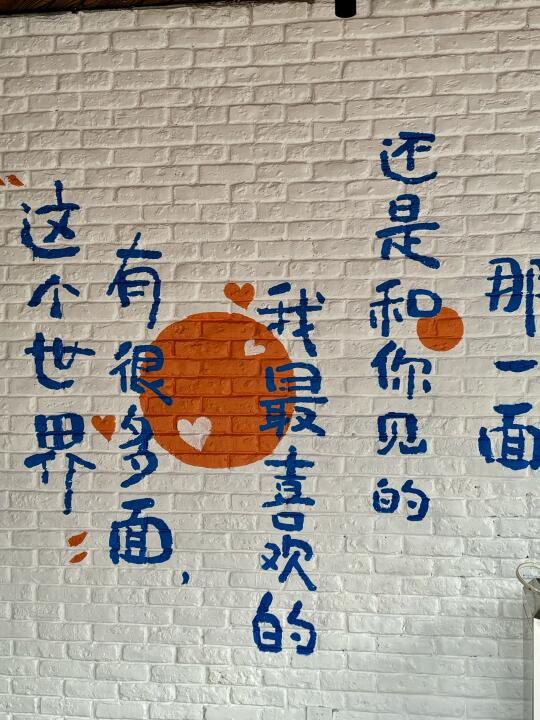 这个世界
有很多面，
我最喜欢的
还是和你见的
那一面